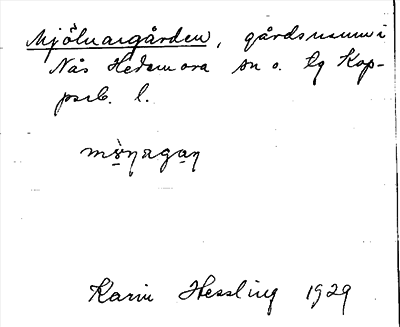 Mjölnargården, gårdsnamn i
Nås Hedemora sn o. lg Kop-
parb. l.
mö̀ṇaga̠ṇ
Karin Hessling 1929